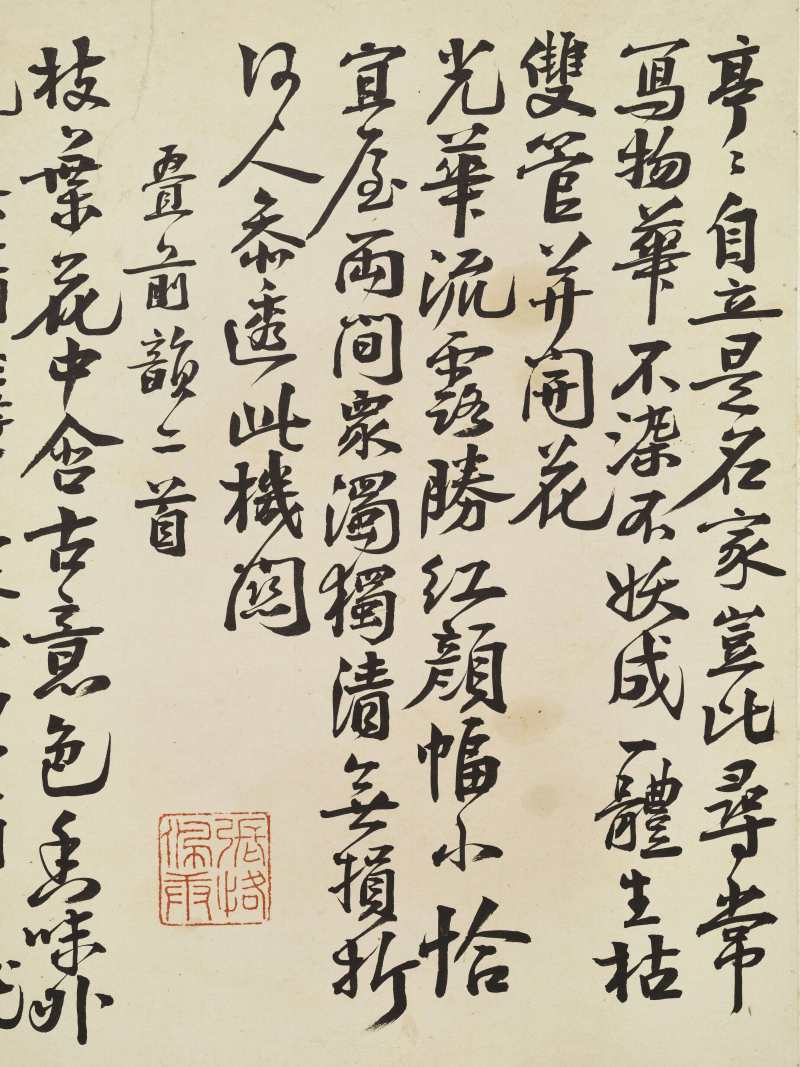 亭〻自立是名家豈此尋常
寫物華不染不妖成一體生枯
雙管并開花
光華流露勝紅顏幅小恰
宜屋兩間衆濁獨清無損折
何人泰透此機關
疊前韻二首
枝葉花中含古意色香味外